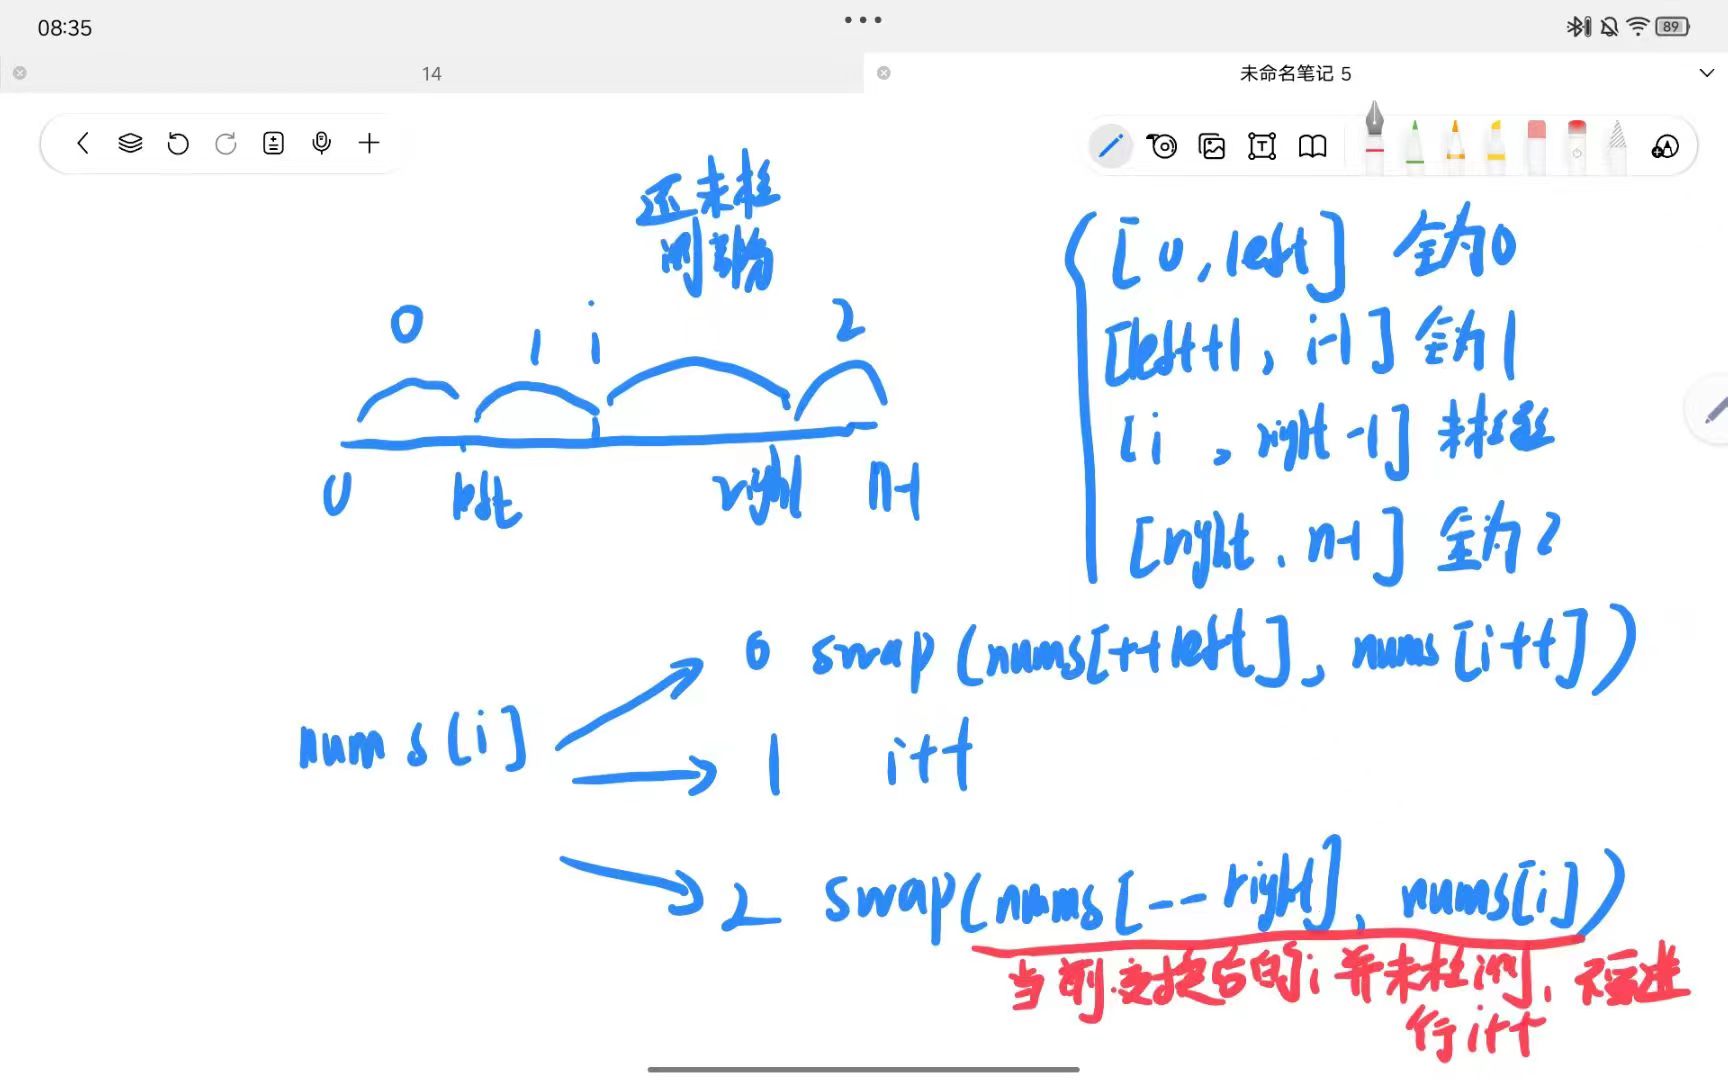 08:35
89
14
未命名笔记 5
还未检
测部分
0
1
i
2
0
left
right
n-1
[0,left] 全为0
[left+1, i-1] 全为1
[i , right-1] 未检
[right, n-1] 全为2
nums[i]
0 swap(nums[++left], nums[i++])
1 i++
2 swap(nums[--right], nums[i])
当前交换后的i并未检测,不需进
行i++